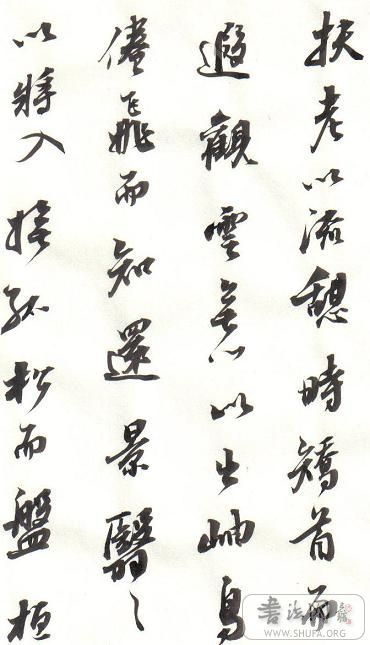 扶老以流憩時矯首而
遐觀雲無心以出岫鳥
倦飛而知還景翳〻
以將入撫孤松而盤桓
書法
WWW.SHUFA.ORG